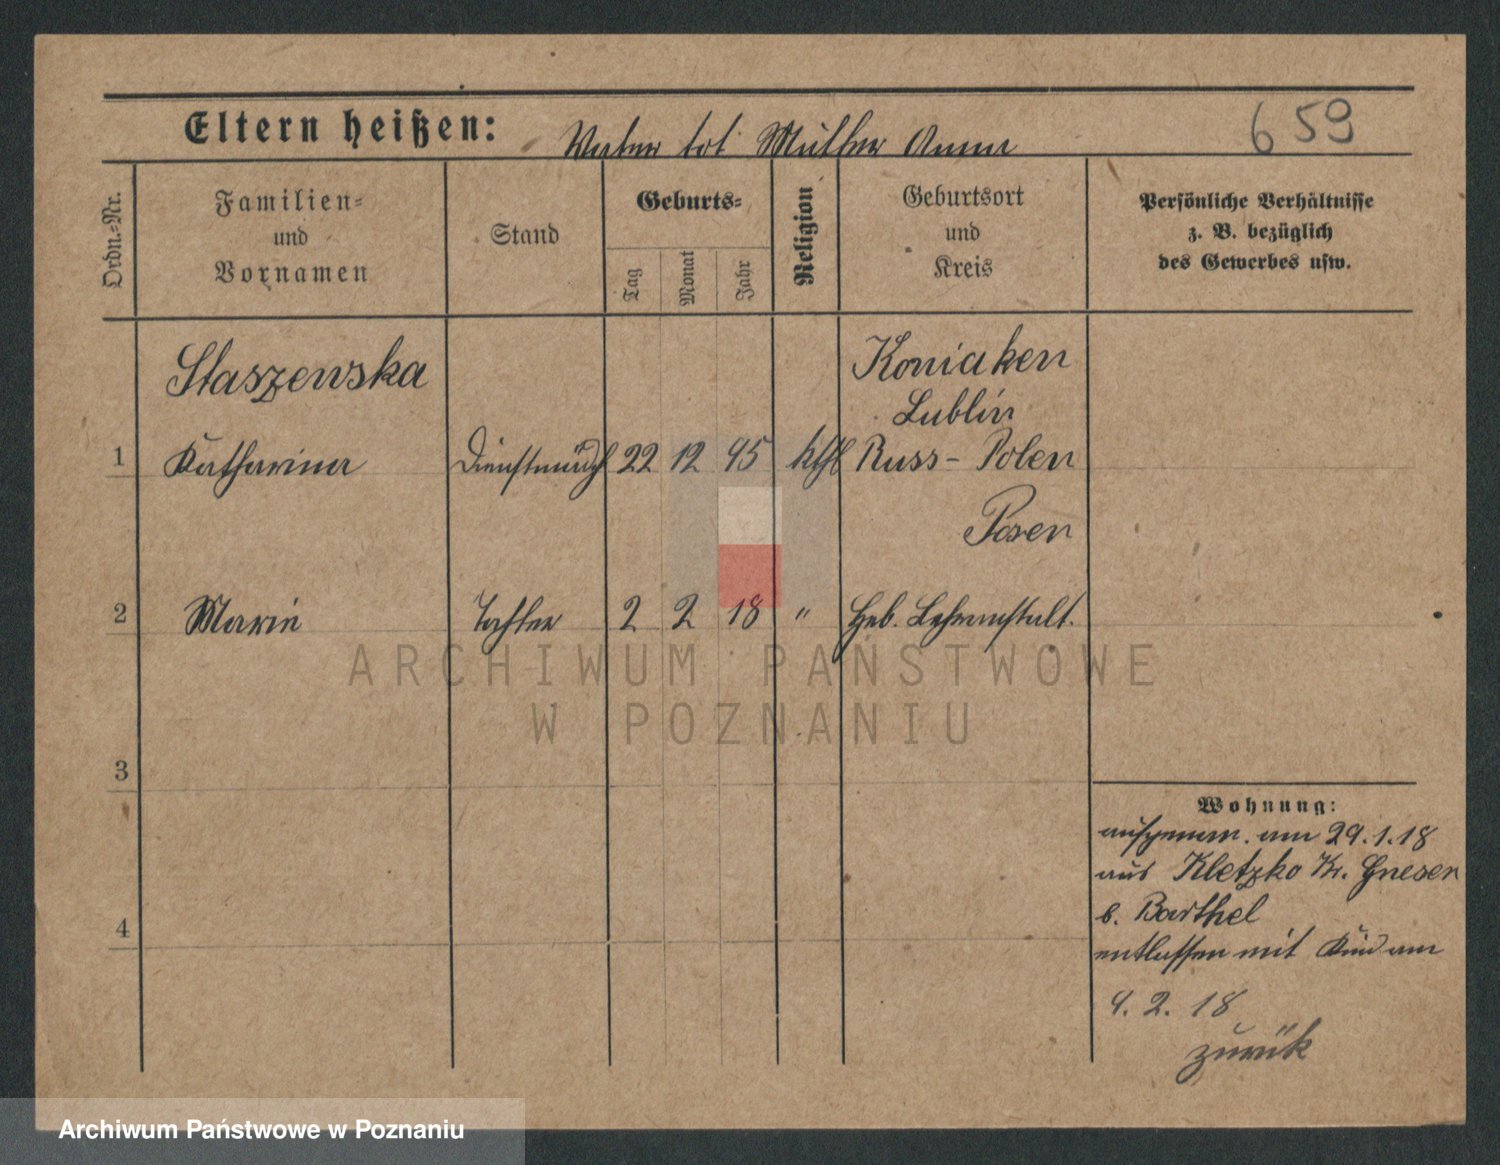 Eltern heißen: Vater tot Mutter Anna 659
Ordn.-Nr.
Familien-
und
Vornamen
Stand
Geburts-
Tag
Monat
Jahr
Religion
Geburtsort
und
Kreis
Persönliche Verhältnisse
z. B. bezüglich
des Gewerbes usw.
Staszewska Koniaken
Lublin
1 Katharina Dienstmädch 22 12 95 kthl Russ-Polen
Posen
2 Marie Tochter 2 2 18 " Heb. Lehranstalt.
ARCHIWUM PAŃSTWOWE
W POZNANIU
3
Wohnung:
aufgenom. am 29.1.18
aus Kletzko Kr. Gnesen
b. Barthel
4
entlassen mit Kind am
9. 2. 18
zurük
Archiwum Państwowe w Poznaniu